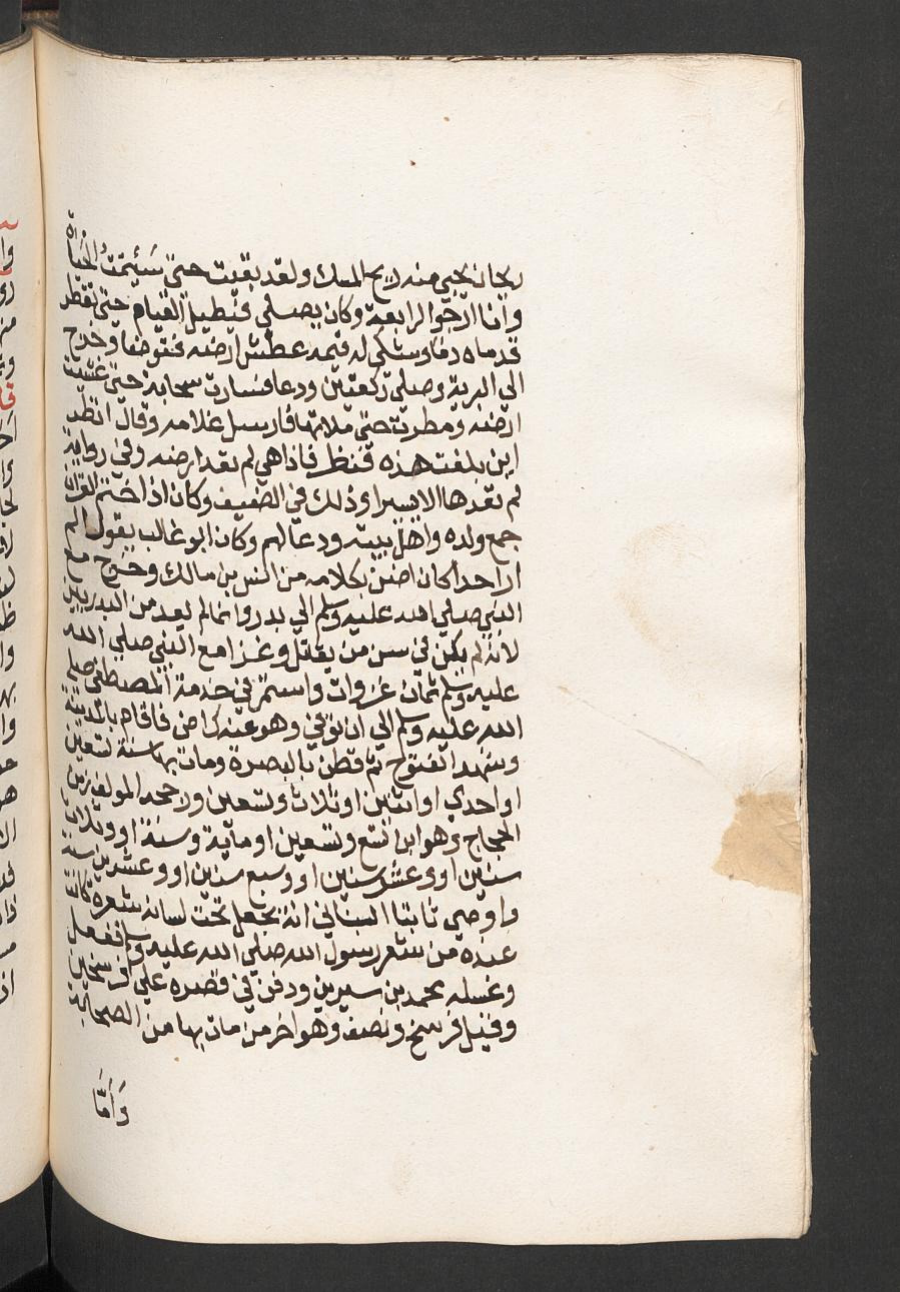 ريحان يجي منه ريح المسك ولقد بقيت حتى سَئِمْتُ الحَيَاةَ
وانا ارجوا الرابعة وكان يصلي فيطيل القيام حتى تقطر
قدماه دما وشكى له قيمه عطش ارضه فتوضا وخرج
الي البرية وصلى ركعتين ودعا فسارت سحابة حتى غشيت
ارضه ومطرت حتى ملاتها فارسل غلامه وقال انظر
اين بلغت هذه فنظر فاذا هي لم تعد ارضه وفي رواية
لم تعدها الا يسيرا وذلك في الصيف وكان اذا ختم القران
جمع ولده واهل بيته ودعا لهم وكان ابو غالب يقول لم
ار احدا كان اضن بكلامه من انس بن مالك وخرج مع
النبي صلي الله عليه وسلم الي بدر وانما لم يعد من البدريين
لانه لم يكن في سن من يقتل وغزا مع النبي صلي الله
عليه وسلم ثمان غزوات واستمر في خدمة المصطفي صلي
الله عليه وسلم الي ان توفي وهو عنه راض فاقام بالمدينة
وشهد الفتوح ثم قطن بالبصرة ومات بها سنة تسعين
او احدي او اثنين او ثلاث وتسعين ورجحه المولف زمن
الحجاج وهو ابن تسع وتسعين او ماية وسنة او وثلاث
سنين او وعشر سنين او وسبع سنين او وعشرين سنة
واوصي ثابتا البناني انه يجعل تحت لسانه شعرة كانت
عنده من شعر رسول الله صلي الله عليه وسلم ففعل
وغسله محمد بن سيرين ودفن في قصره علي فرسخين
وقيل فرسخ ونصف وهو اخر من مات بها من الصحابة
وَأَمَّا